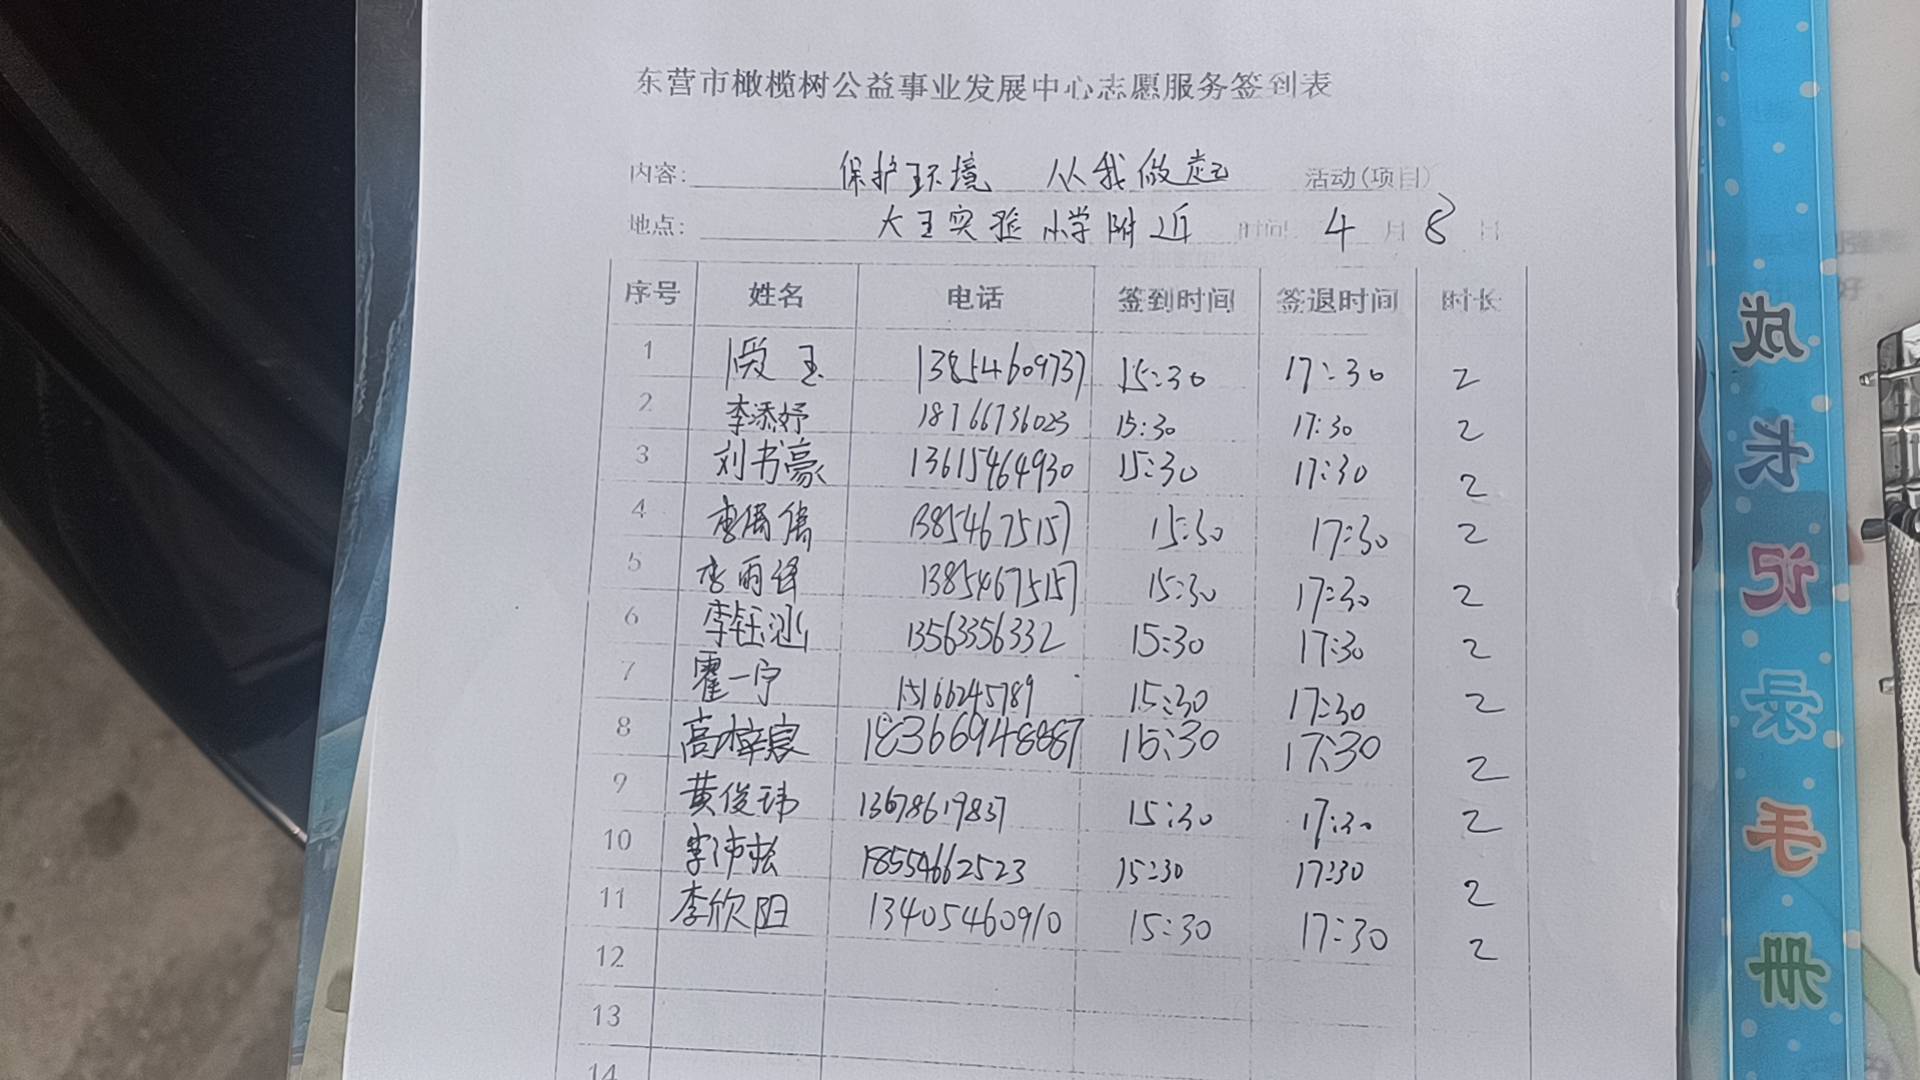 东营市橄榄树公益事业发展中心志愿服务签到表
内容: 保护环境 从我做起 活动(项目)
地点: 大王实验小学附近 时间 4 月 8 日
序号 姓名 电话 签到时间 签退时间 时长
1 玉 13854609737 15:30 17:30 2
2 李添妤 18766736023 15:30 17:30 2
3 刘书豪 13615464930 15:30 17:30 2
4 李 13854675157 15:30 17:30 2
5 李雨泽 13854675157 15:30 17:30 2
6 李钰 13563356332 15:30 17:30 2
7 霍一宁 15166245789 15:30 17:30 2
8 高梓宸 183669948887 15:30 17:30 2
9 黄俊玮 13678619837 15:30 17:30 2
10 李沛松 18554662523 15:30 17:30 2
11 李欣阳 13405460910 15:30 17:30 2
12
13
14
成长记录手册